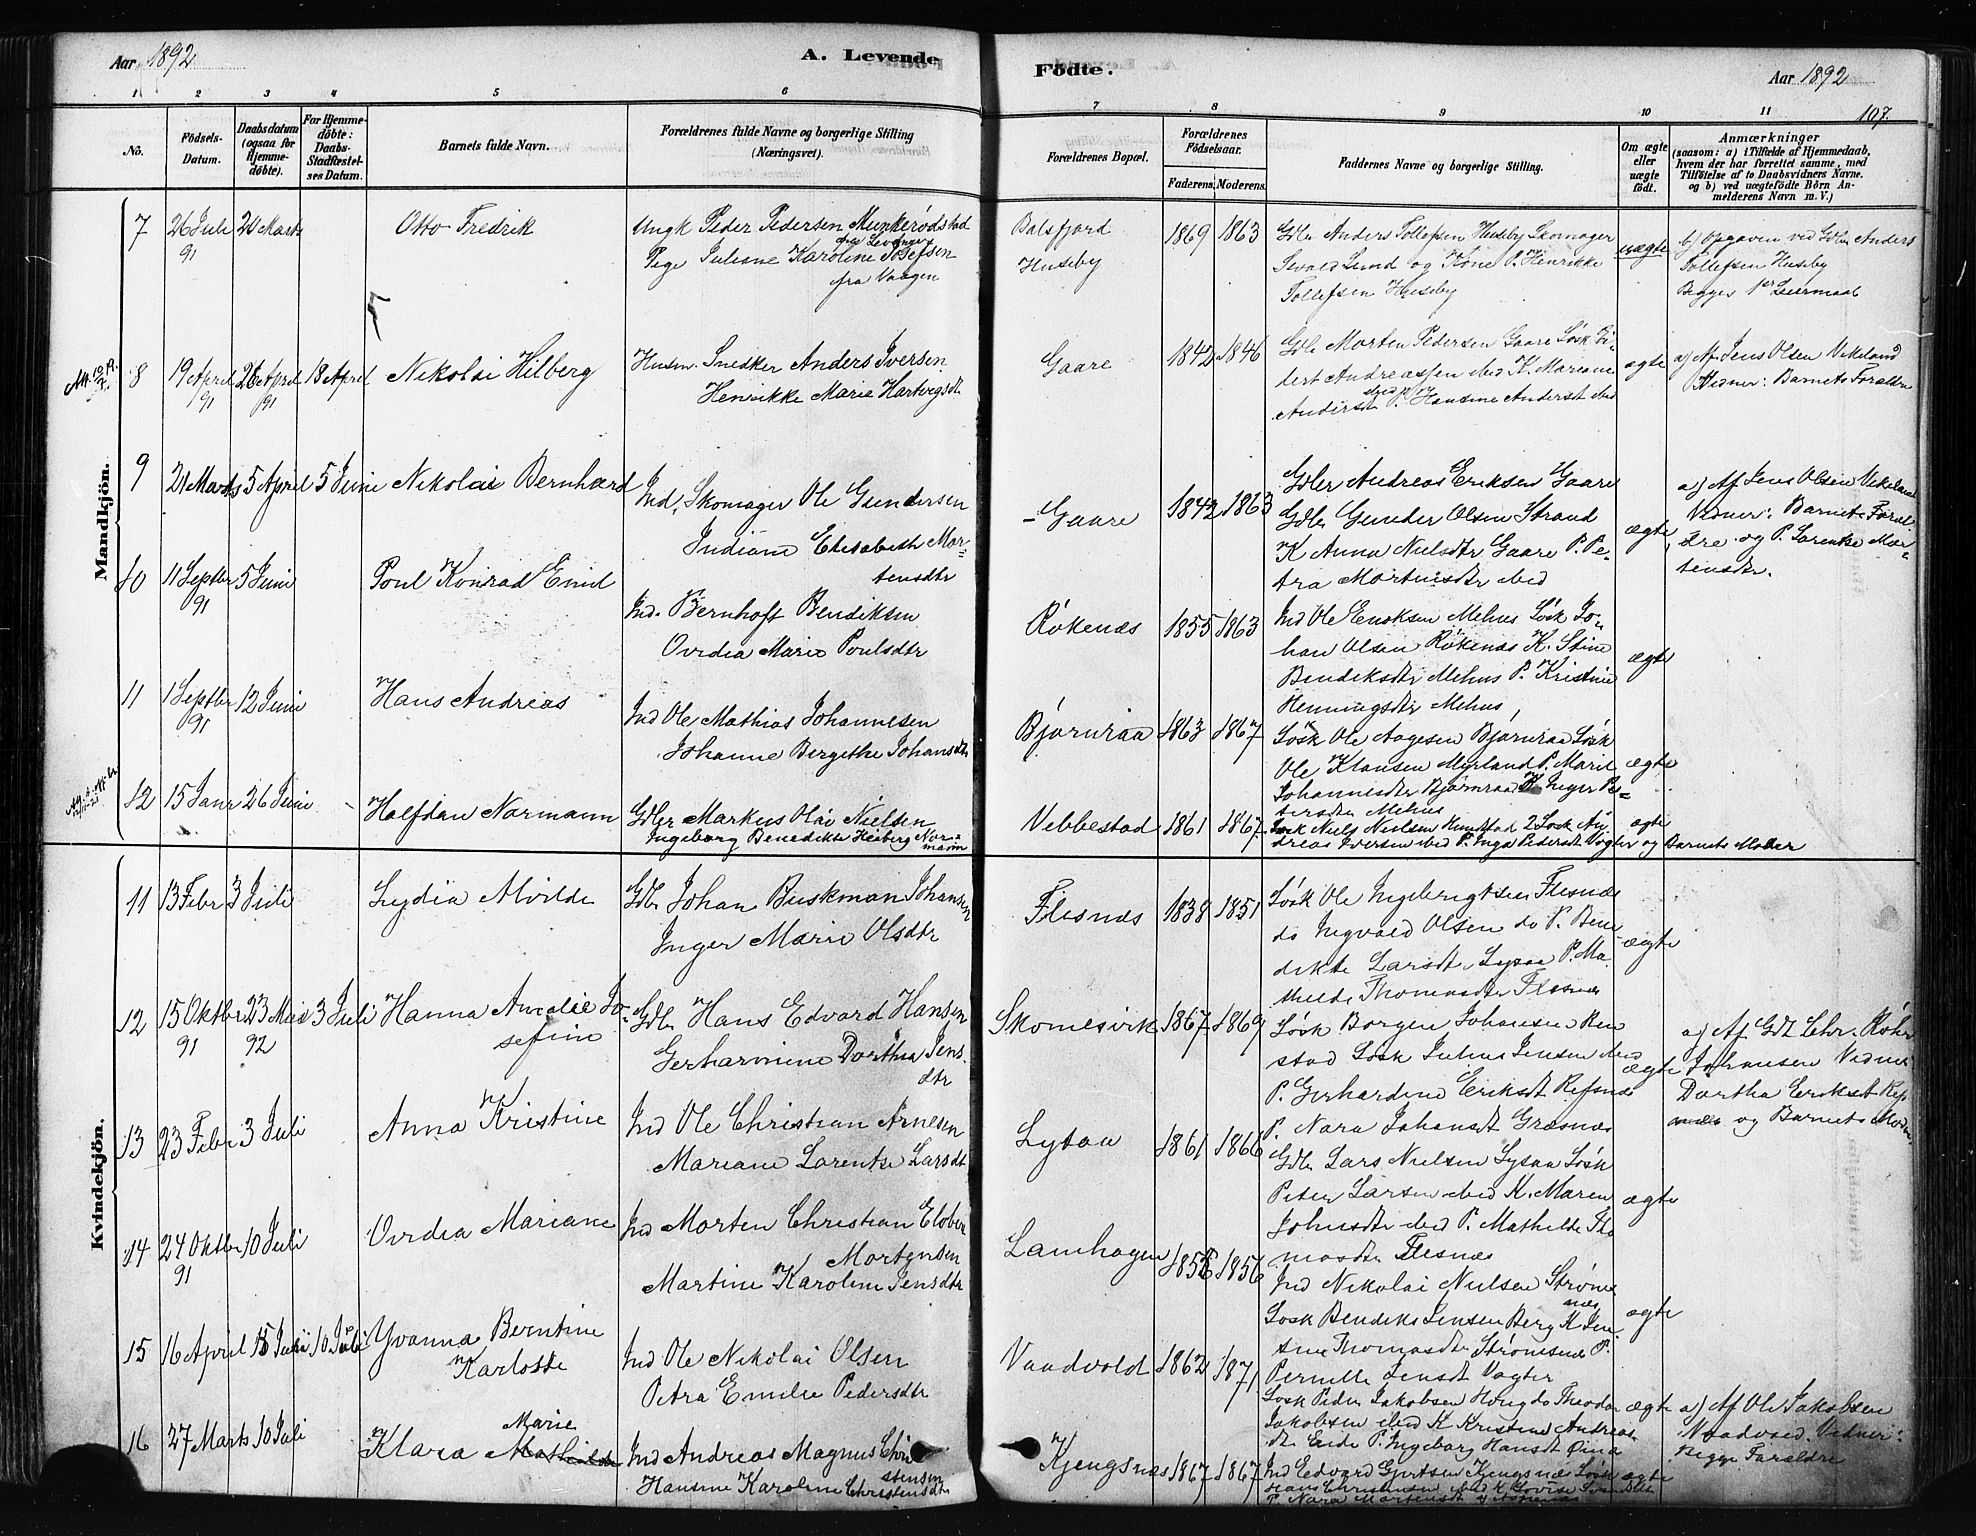 Aar 1892
A. Levende
Födte.
Aar 1892
107.
1 2 3 4 5 6 7 8 9 10 11
No.
Födsels-Datum.
Daabsdatum (ogsaa for Hjemme-döbte).
For Hjemme-döbte: Daabs-Stadfæstel-ses Datum.
Barnets fulde Navn.
Forældrenes fulde Navne og borgerlige Stilling (Næringsvei).
Forældrenes Bopæl.
Forældrenes Födselsaar.
Faderens. Moderens.
Faddernes Navne og borgerlige Stilling.
Om ægte eller uægte födt.
Anmærkninger
(saasom: a) i Tilfælde af Hjemmedaab, hvem der har forrettet samme, med Tilföielse af to Daabsvidners Navne. og b) ved uægtefödte Börn An-melderens Navn m. V.)
Mandkjön.
7 26 Juli 91 20 Marts Otto Fredrik
Ungk Peder Pedersen Munkerødstad
fra Levanger
Pige Juliane Karoline Josefsen
fra Vaagen
Balsfjord
Huseby
1869 1863
Gdbr Anders Tollefsen Huseby Skomager
Sevald Lund og Kone P. Henrikke
Tollefsen Huseby
uægte
b) Opgaven ved Gdbr Anders
Tollefsen Huseby
Begges 1ste Leiermaal
8 19 April 91 26 April 91 18 April Nikolai Hilberg
Husm. Snedker Anders Iversen
Henrikke Marie Hartvigsdt
Gaare 1842 1846
Gdb Morten Pedersen Gaare Løsk
Andreassen ibid K. Mariane
Andersdt ibid P. Hansine Andersdt ibid
ægte
a) Af Jens Olsen Vikeland
Vidner: Barnets Forældre
9 21 Marts 5 April 5 Juni Nikolai Bernhard
Ind. Skomager Ole Gundersen
Indiane Elisabeth Mor-
tensdtr
Gaare 1842 1863
Gdbr Andreas Eriksen Gaare
Gdbr Gunder Olsen Strand
K Anna Nielsdtr Gaare P. Pe-
tra Mortensdtr ibid
ægte
a) Af Jens Olsen Vikeland
Vidner: Barnets Foræl-
dre og P. Lorentze Mor-
tensdtr.
10 11 Septbr 91 5 Juni Poul Konrad Emil
Ind. Bernhoft Bendiksen
Ovedia Marie Poulsdtr
Røkenæs 1855 1863
Ind Ole Enoksen Melnes Løsk Jo-
han Olsen Røkenæs K. Stine
Bendiksdtr Melnes P. Kristine
Henningsdtr Melnes
ægte
11 1 Septbr 91 12 Juni Hans Andreas
Ind Ole Mathias Johannesen
Johanne Bergithe Johansdtr
Bjørnraa 1863 1867
Løsk Ole Aagesen Bjørnraa Løsk
Ole Klausen Myrland P. Marit
Johannesdtr Bjørnraa K Inger Pe-
dersdtr Melnes
ægte
12 15 Janr 26 Juni Halfdan Normann
Gdbr Markus Olai Nielsen
Ingeborg Benedikte Heiberg Nor-
mann
Vebbestad 1861 1867
Løsk Niels Nielsen Hunstad 2 Løsk An-
dreas Iversen ibid P. Inga Pedersdt Vogter og Barnets Moder
ægte
Kvindekjön.
11 13 Febr 3 Juli Lydia Alvilde
Gdbr Johan Buskman Johansen
Inger Marie Olsdtr
Flesnæs 1838 1851
Løsk Ole Ingebrigtsen Flesnæs
do Ingvald Olsen do P. Bene
dikte Larsdt Lysaa P. Ma
thilde Thomasdtr Flesnæs
ægte
12 15 Oktbr 91 23 Mai 92 3 Juli Hanna Amalie Jo-
sefine
Gdbr Hans Edvard Hansen
Gerhardine Dorthea Jens-
dtr
Skomesvik 1867 1869
Løsk Borgen Johansen Ren
stad Løsk Julius Jensen ibid
P. Gerhardine Eriksdt Refsnæs
P. Nora Johansdt Græsnæs
ægte
a) Af Gdb. Chr. Røhr
Johansen Vidner
Dortha Eriksdt Ref
snæs og Barnets Moder
13 23 Febr 3 Juli Anna Kristine
Ind Ole Christian Arnesen
Mariane Lorentze Larsdt
Lysaa 1861 1866
Gdbr Lars Nielsen Lysaa Løsk
Peter Larsen ibid K. Maren
Johnsdtr ibid P. Mathilde Tho
masdtr Flesnæs
ægte
14 24 Oktbr 91 10 Juli Ovedia Mariane
Ind Morten Christian
Mortensen
Martine Karoline Jensdtr
Lamhagen 1856
Ind Nikolai Nielsen Strømsnæs
Løsk Bendiks Jensen Berg K Jen
sine Thomasdtr Strømsnæs P.
Pernille Jensdt Vogter
ægte
15 16 April 15 Juni 10 Juli Yvanna Berntine
Karlotte
Ind Ole Nikolai Olsen
Petra Emilie Pedersdtr
Vaadvold 1862 1871
Løsk Peder Jakobsen do Theodor
Jakobsen ibid K Kristine Andreas-
dt P. Ingeborg Hansdt
ægte
a) Af Ole Jakobsen
Vaadvold. Vidner:
Begge Forældre
16 27 Marts 10 Juli Klara Marie Mathilde
Ind Andreas Magnus Chri
stensen
Hansine Karoline Christensdtr
Kjengsnæs 1867 1867
Ind Edvard Gjertsen Kjengsnæs Løsk
Hans Christensen ibid K Lovise
P. Nora Mortensdt
ægte